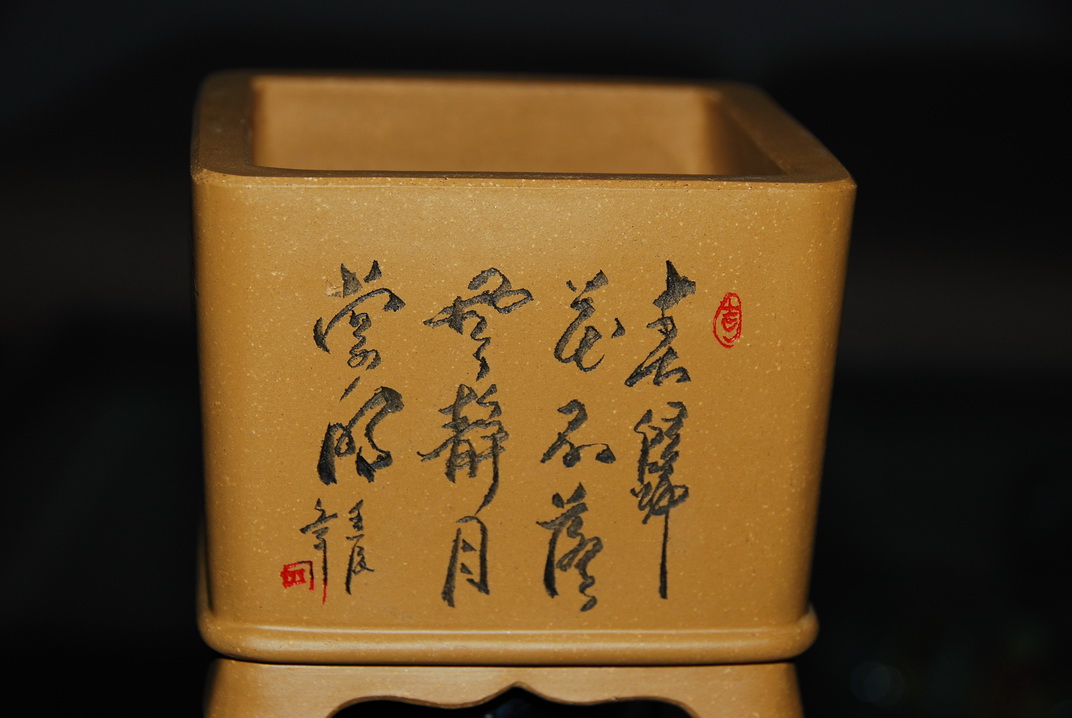 春歸
花不落
風靜月
常明
壬辰